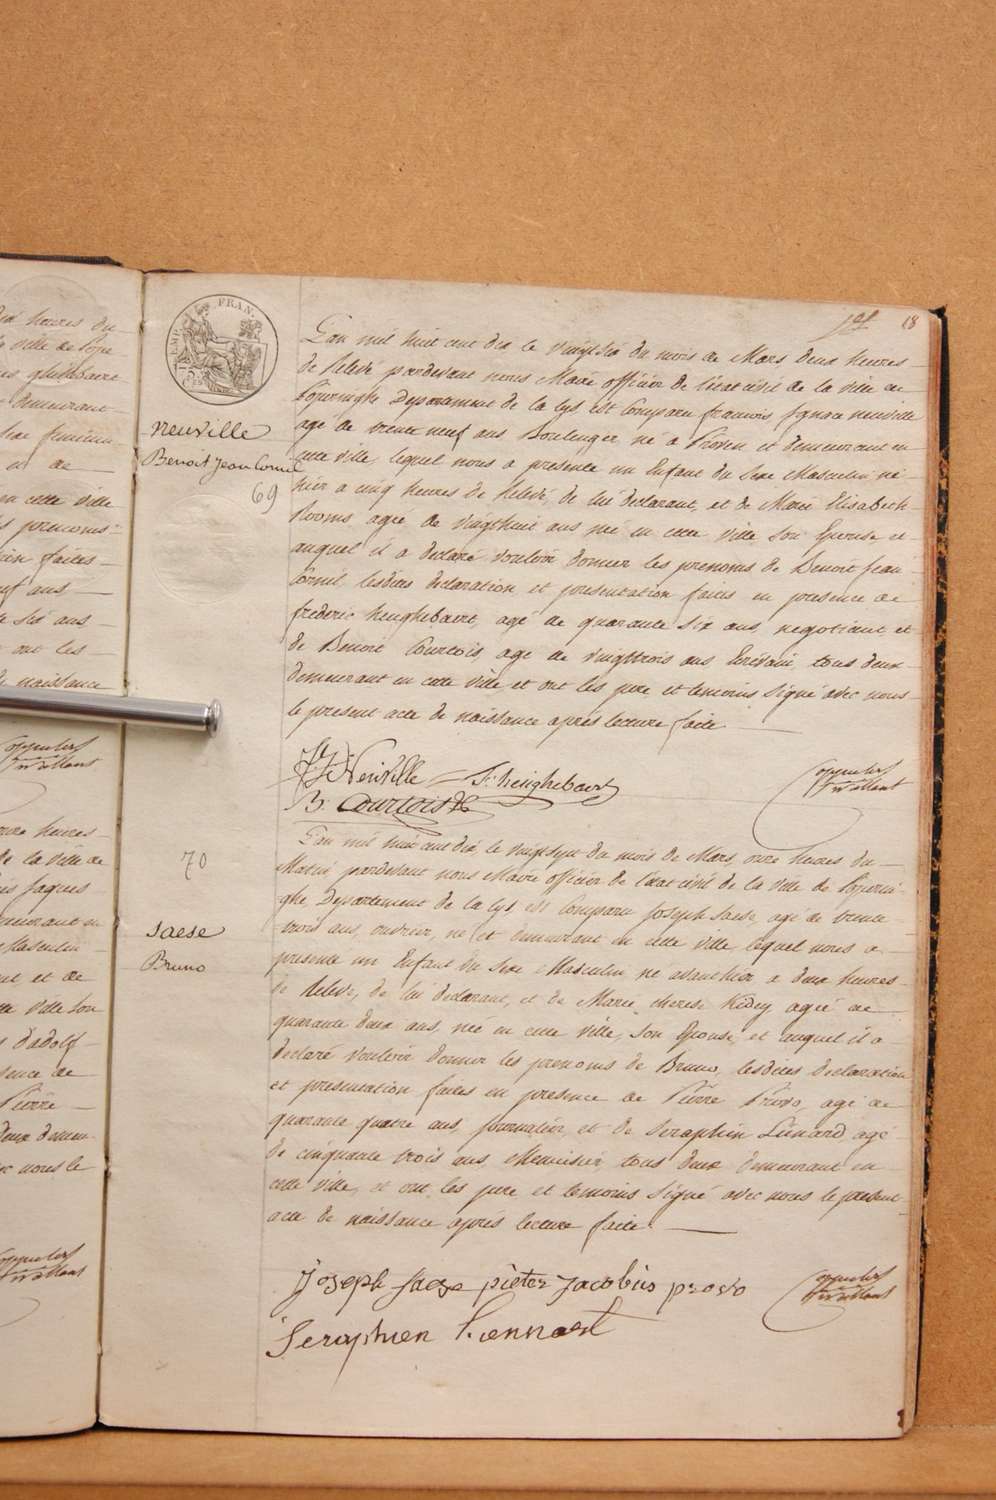 dix heures du
la ville de Pope
demeurant
sexe feminin
en cette ville
prenoms
faites
neuf ans
six ans
ont les
de naissance
onze heures
de la ville de
Jaques
demeurant en
Masculin
et de
cette ville son
presence de
Pierre
deux demeu
avec nous le
18
TIMB. FRAN.
neuville
Benoit Jean Cornil
69
L'an mil huit cent dix le vingtsix du mois de Mars deux heures
de Relevé pardevant nous Maire officier de l'état civil de la ville de
Poperinghe Departement de la Lys est Comparu francois Ignace neuville
agé de trente neuf ans Boulenger né a Proven et demeurant en
cette ville, lequel nous a presenté un Enfant du Sexe Masculin né
hier a cinq heures de Relevé, de lui declarant, et de Marie Elisabeth
Rooms agée de vingthuit ans née en cette ville son Epouse et
auquel il a declaré vouloir donner les prenoms de Benoit Jean
Cornil lesdites declaration et presentation faites en presence de
frederic henghebaert, agé de quarante six ans, negotiant et
de Benoit Courtois agé de vingttrois ans Ecrivain, tous deux
demeurant en cette ville et ont les pere et temoins signé avec nous
le present acte de naissance après lecture faite
F J Neuville F. henghebaert
B. Courtois
70
saese
Bruno
L'an mil huit cent dix le vingtsept du mois de Mars, onze heures du
Matin, pardevant nous Maire officier de l'état civil de la ville de Poperin
ghe Departement de la Lys, est Comparu Joseph Saese, agé de trente
trois ans, ouvrier, né et demeurant en cette ville lequel nous a
presenté un Enfant du Sexe Masculin né avanthier a deux heures
de Relevé, de lui declarant, et de Marie therese Kidey agée de
quarante deux ans, née en cette ville, son Epouse, et auquel il a
declaré vouloir donner les prenoms de Bruno, lesdites declaration
et presentation faites en presence de Pierre Provo, agé de
quarante quatre ans, journalier, et de Seraphin Lienard agé
de cinquante trois ans, Menuisier tous deux demeurant en
cette ville, et ont les pere et temoins signé avec nous le present
acte de naissance après lecture faite.
Joseph Saese pieter Jacobus provo
Seraphien Liennart